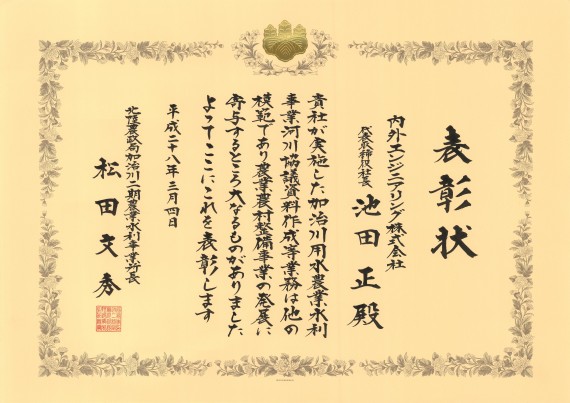 表彰状
内外エンジニアリング株式会社
代表取締役社長 池田正殿
貴社が実施した加治川用水農業水利
事業河川協議資料作成等業務は他の
模範であり農業農村整備事業の発展に
寄与するところ大なるものがありました
よってここにこれを表彰します
平成二十八年三月四日
北陸農政局加治川二期農業水利事業所長
松田文秀